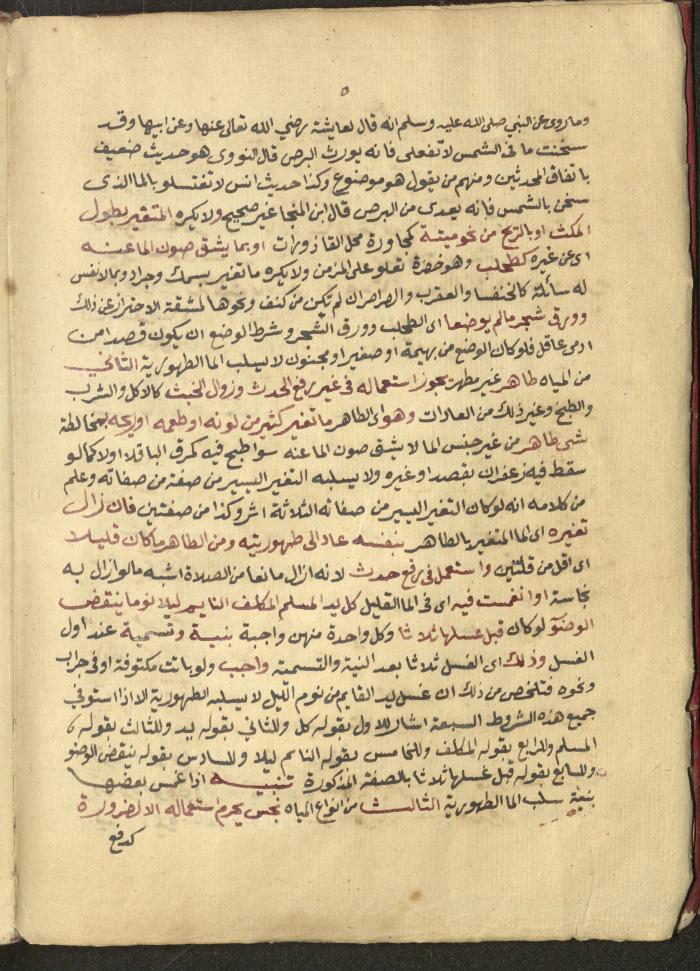 ٥
وما روى عن النبي صلى الله عليه وسلم انه قال لعايشة رضي الله تعالى عنها وعن ابيها وقد
سخنت ما في الشمس لا تفعلى فانه يورث البرص قال النووى هو حديث ضعيف
باتفاق المحدثين ومنهم من يقول هو موضوع وكذا حديث انس لا تغتسلو بالما الذى
سخن بالشمس فانه يعدى من البرص قال ابن المنجا غير صحيح ولا يكره المتغير بطول
المكث او بالريح من نحو ميتة كمجاورة محل القاذورات او بما يشق صون الما عنه
اى عن غيره كطحلب وهو خضرة تعلو على الما المزمن ولا يكره ما تغير بسمك وجراد وبالانفس
له سائلة كالخنفسا والعقرب والصراصران لم تكن من كنف ونحوها لمشقة الاحتراز عن ذلك
وورق شجر مالم يوضعا اى الطحلب وورق الشجر وشرط الوضع ان يكون قصدا من
ادمى عاقل فلو كان الوضع من بهيمة او صغير او مجنون لا يسلب الما الطهورية الثاني
من المياه طاهر غير مطهر يجوز استعماله في غير رفع الحدث وزول الخبث كالاكل والشرب
والطبخ وغير ذلك من العادات وهو اى الطاهر ما تغير كثير من لونه او طعمه او ريحه بمخالطة
شى طاهر من غير جنس الما لا يشق صون الما عنه سوا طبخ فيه كمرق الباقلا اولا كما لو
سقط فيه زعفران بقصد او غيره ولا يسلبه التغير اليسير من صفة من صفاته وعلم
من كلامه انه لو كان التغير اليسير من صفاته الثلاثة اثر وكذا من صفتين فان زال
تغيره اى الما المتغير بالطاهر بنفسه عاد الى طهوريته ومن الطاهر ما كان قليلا
اى اقل من قلتين واستعمل في رفع حدث لانه ازال مانعا من الصلاة اشبه مالو ازال به
نجاسة او انغمست فيه اى في الما القليل كل يد المسلم المكلف النايم ليلا نوما ينقض
الوضوء لو كان قبل غسلها ثلاثا وكل واحدة منهن واجبة بنية وتسمية عند اول
الغسل وذلك اى الغسل ثلاثا بعد النية والتسمية واجب ولو باتت مكتوفة او في جراب
ونحوه فتلخص من ذلك ان غسل يد القايم من نوم الليل لا يسلبه الطهورية الا اذا استوفى
جميع هذه الشروط السبعة اشار للاول بقوله كل وللثاني بقوله يد وللثالث بقوله
المسلم وللرابع بقوله المكلف وللخامس بقوله النايم ليلا وللسادس بقوله ينقض الوضو
وللسابع بقوله قبل غسلها ثلاثا بالصفة المذكورة تنبيه اذا غمس بعضها
بنية سلب الما الطهورية الثالث من انواع المياه نجس يحرم استعماله الا لضرورة
كدفع